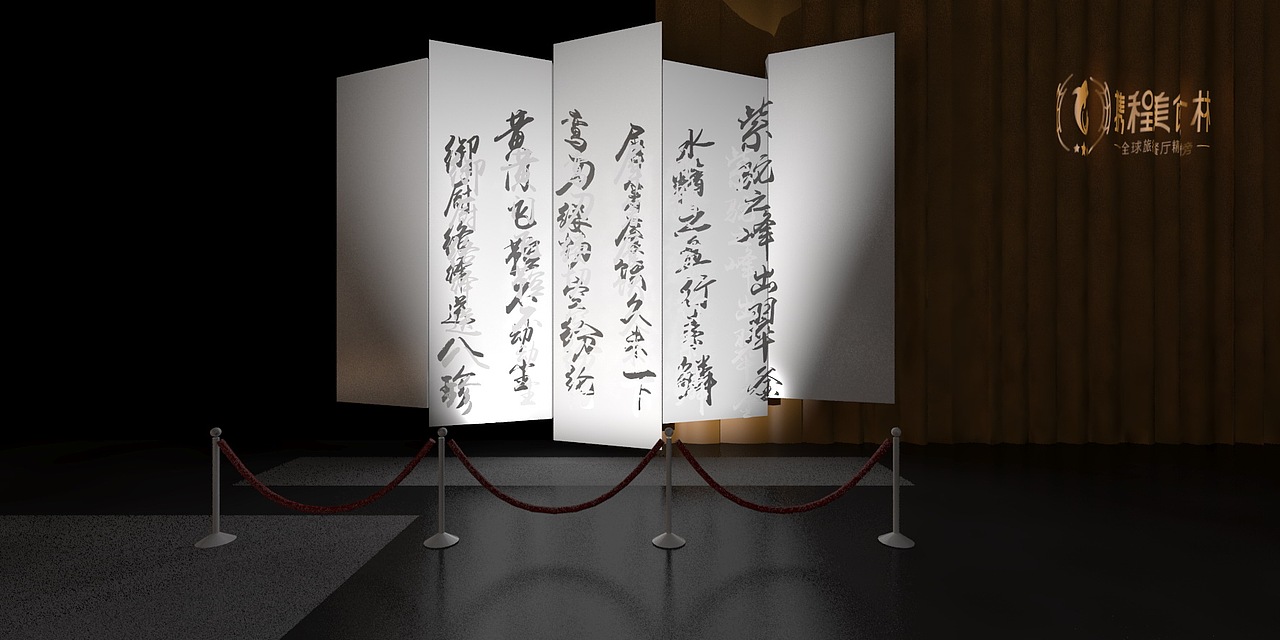 紫驼之峰出翠釜
水精之盘行素鳞
犀箸厌饫久未下
鸾刀缕切空纷纶
黄门飞鞚不动尘
御厨络绎送八珍
携程美食林